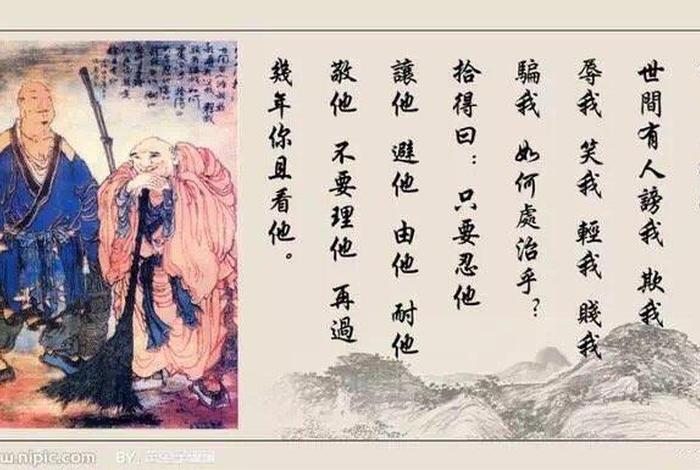 世間有人謗我 欺我
辱我 笑我 輕我 賤我
騙我 如何處治乎?
拾得曰: 只要忍他
讓他 避他 由他 耐他
敬他 不要理他 再過
幾年你且看他。
w.nipic.com
BY: